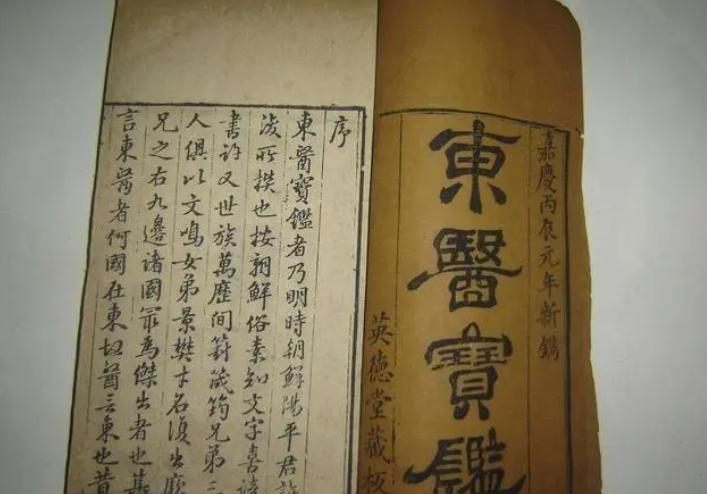 嘉慶丙辰元年新鐫
東醫寶鑑
英德堂藏板
序
東醫寶鑑者乃明時朝鮮陽平君許
浚所撰也按朝鮮俗素知文字喜讀
書許又世族萬歷間篈筬筠兄弟三
人俱以文鳴女弟景樊才名復出厥
兄之右九邊諸國冣為傑出者也其
言東醫者何國在東故醫言東也昔